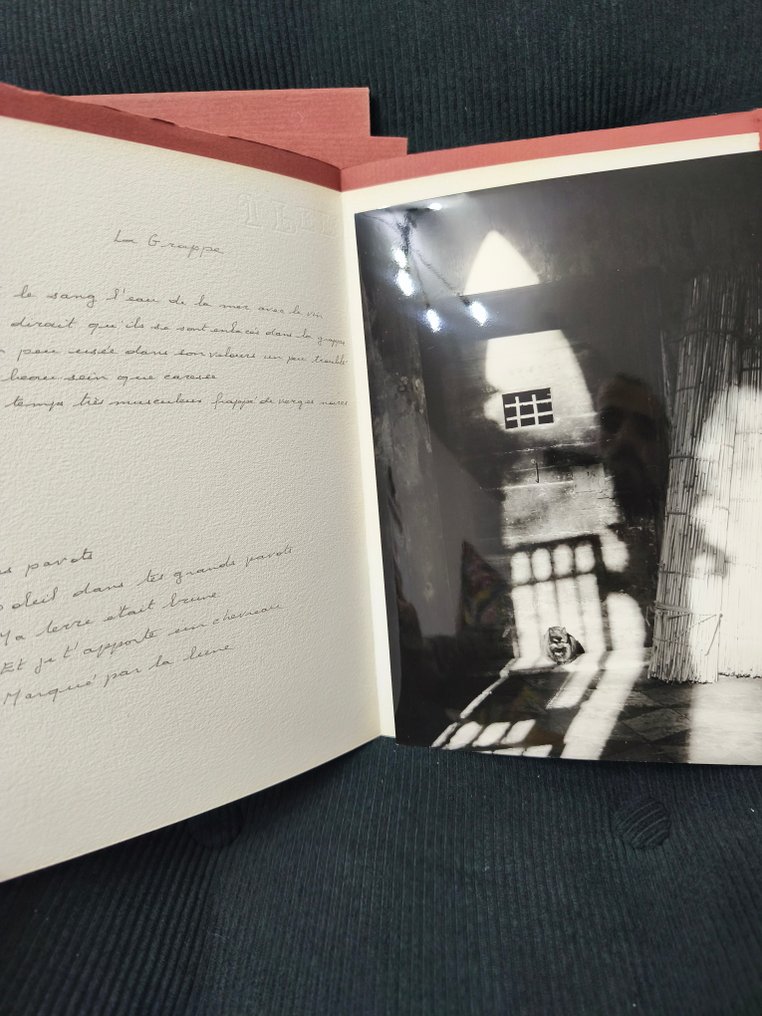 La Grappe
le sang l'eau de la mer avec le vin
dirait qu'ils se sont enlacés dans la grappe
peu usée dans son velours un peu trouble
beau sein que caresse
temps très musculeux frappé de verges nues
pavots
soleil dans tes grands pavots
Ma terre était brune
Et je t'apporte un chevreau
Marqué par la lune